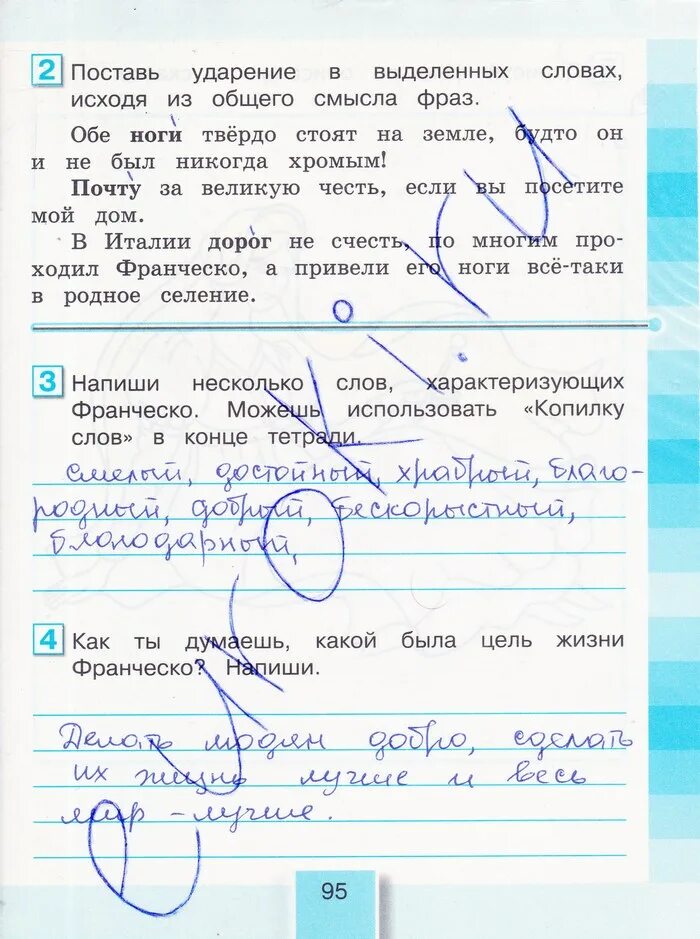 2 Поставь ударение в выделенных словах,
исходя из общего смысла фраз.
Обе ноги́ твёрдо стоят на земле, будто он
и не был никогда хромым!
Почту́ за великую честь, если вы посетите
мой дом.
В Италии доро́г не счесть, по многим про-
ходил Франческо, а привели его ноги всё-таки
в родное селение.
3 Напиши несколько слов, характеризующих
Франческо. Можешь использовать «Копилку
слов» в конце тетради.
смелый, достойный, храбрый, благо-
родный, добрый, бескорыстный,
благодарный,
4 Как ты думаешь, какой была цель жизни
Франческо? Напиши.
Делать людям добро, сделать
их жизнь лучше и весь
мир - лучше.
95